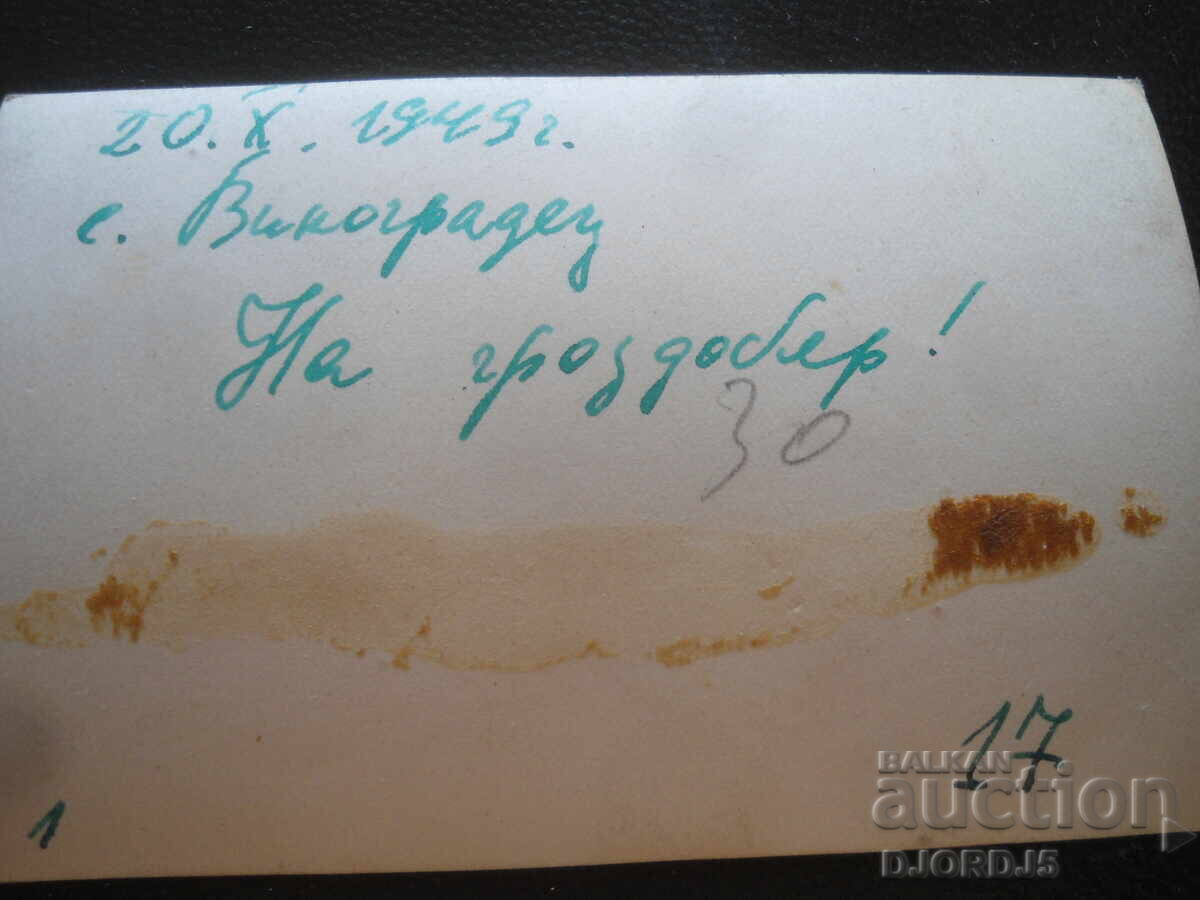 20. X. 1949 г.
с. Виноградец
На гроздобер!
30
17
1
BALKAN
auction
DJORDJ5